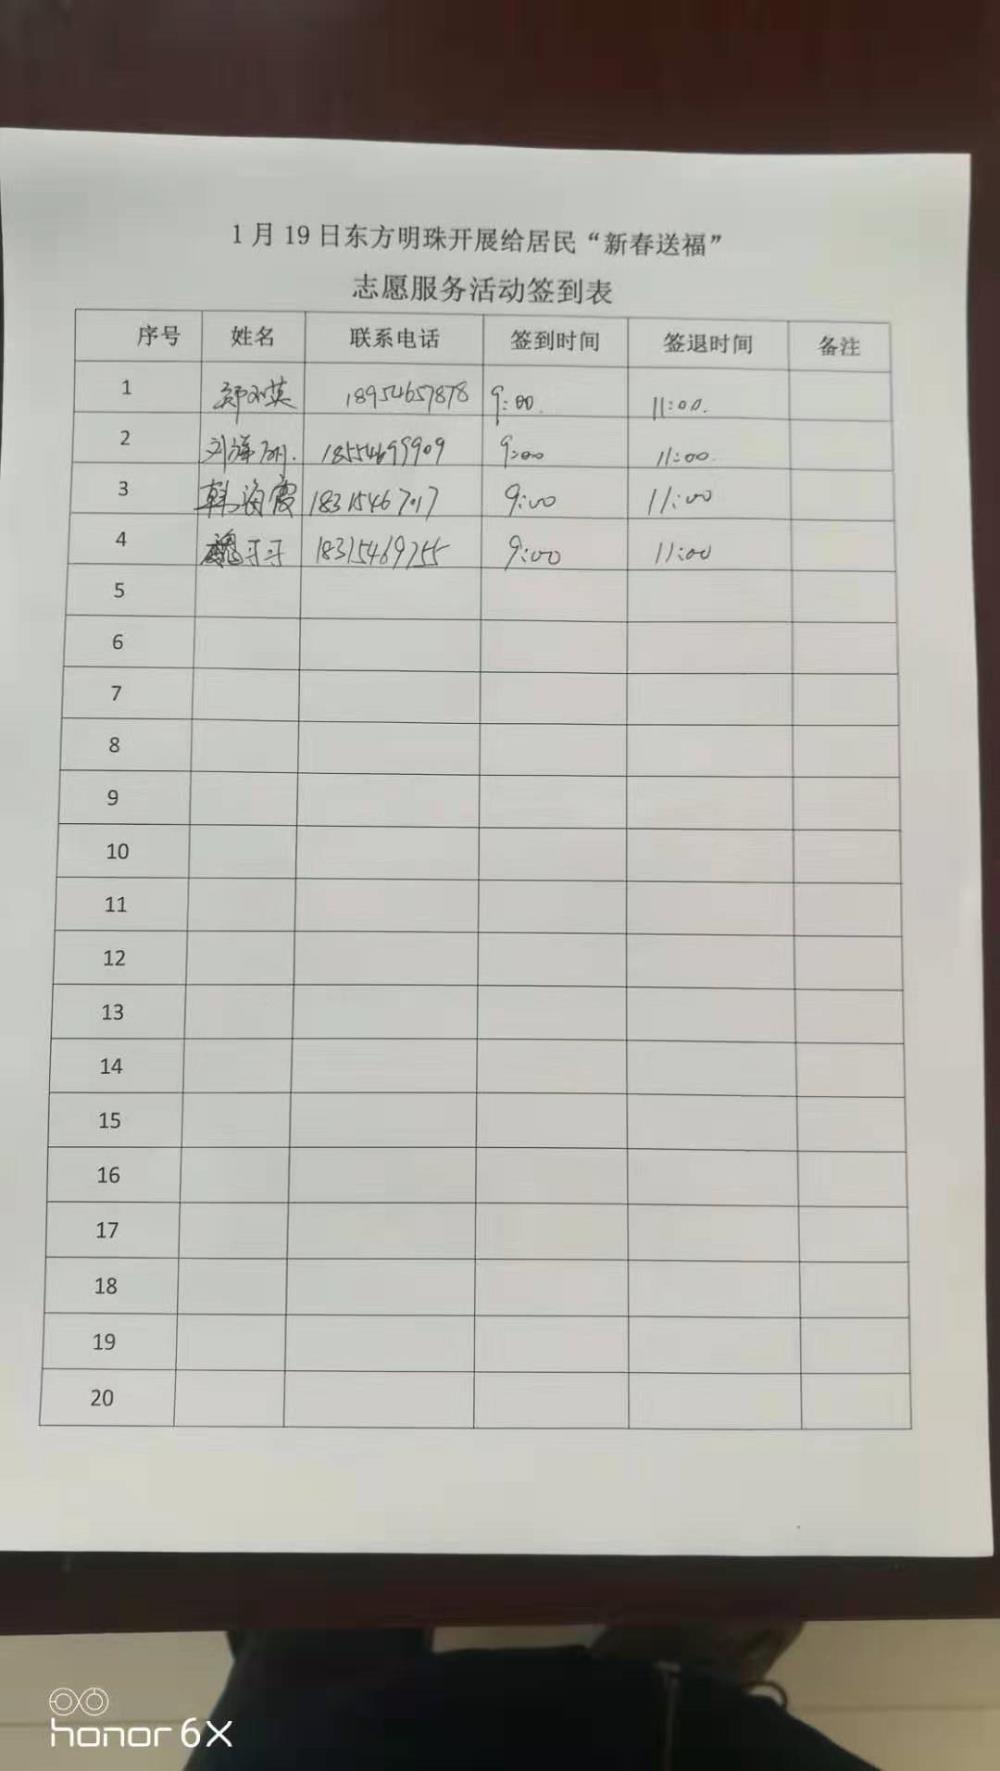 1月19日东方明珠开展给居民“新春送福”
志愿服务活动签到表
序号 姓名 联系电话 签到时间 签退时间 备注
1 18954657878 9:00. 11:00.
2 18554699909 9:00 11:00.
3 韩海霞 9:00 11:00
4 魏子子 18315469755 9:00 11:00
5
6
7
8
9
10
11
12
13
14
15
16
17
18
19
20
honor 6X